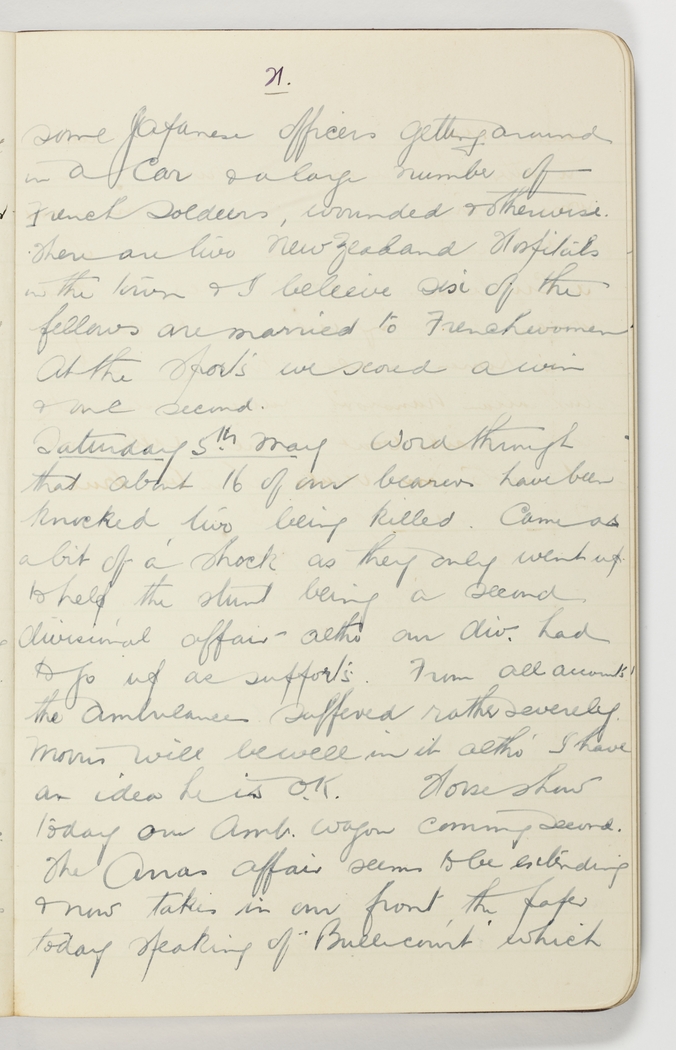 21.
some Japanese officers getting around
in a Car & a large number of
French Soldeirs, wounded & otherwise.
There are two New Zealand Hospitals
in the town & I beleeive six of the
fellows are married to Frenchwomen
At the sports we scored a win
& one second.
Saturday 5th May Word through
that about 16 of our bearers have been
knocked two being killed. Came as
a bit of a shock as they only went up
to help the stunt being a second
divisional affair - altho our div. had
to go up as supports. From all accounts
the ambulances suffered rather severely.
Morris will be well in it altho' I have
an idea he is O.K. Horse show
today our Amb. wagon coming second.
The Arras affair seems to be extending
& now takes in our front, the paper
today speaking of "Bullecourt" which